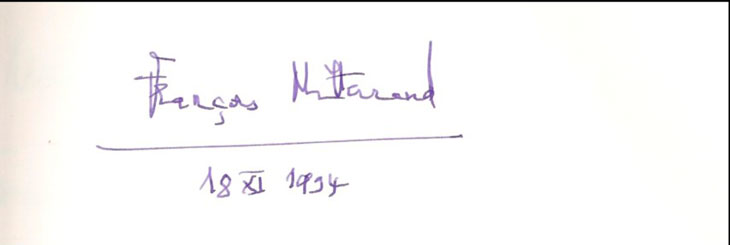 François Mitterrand
18 XI 1994